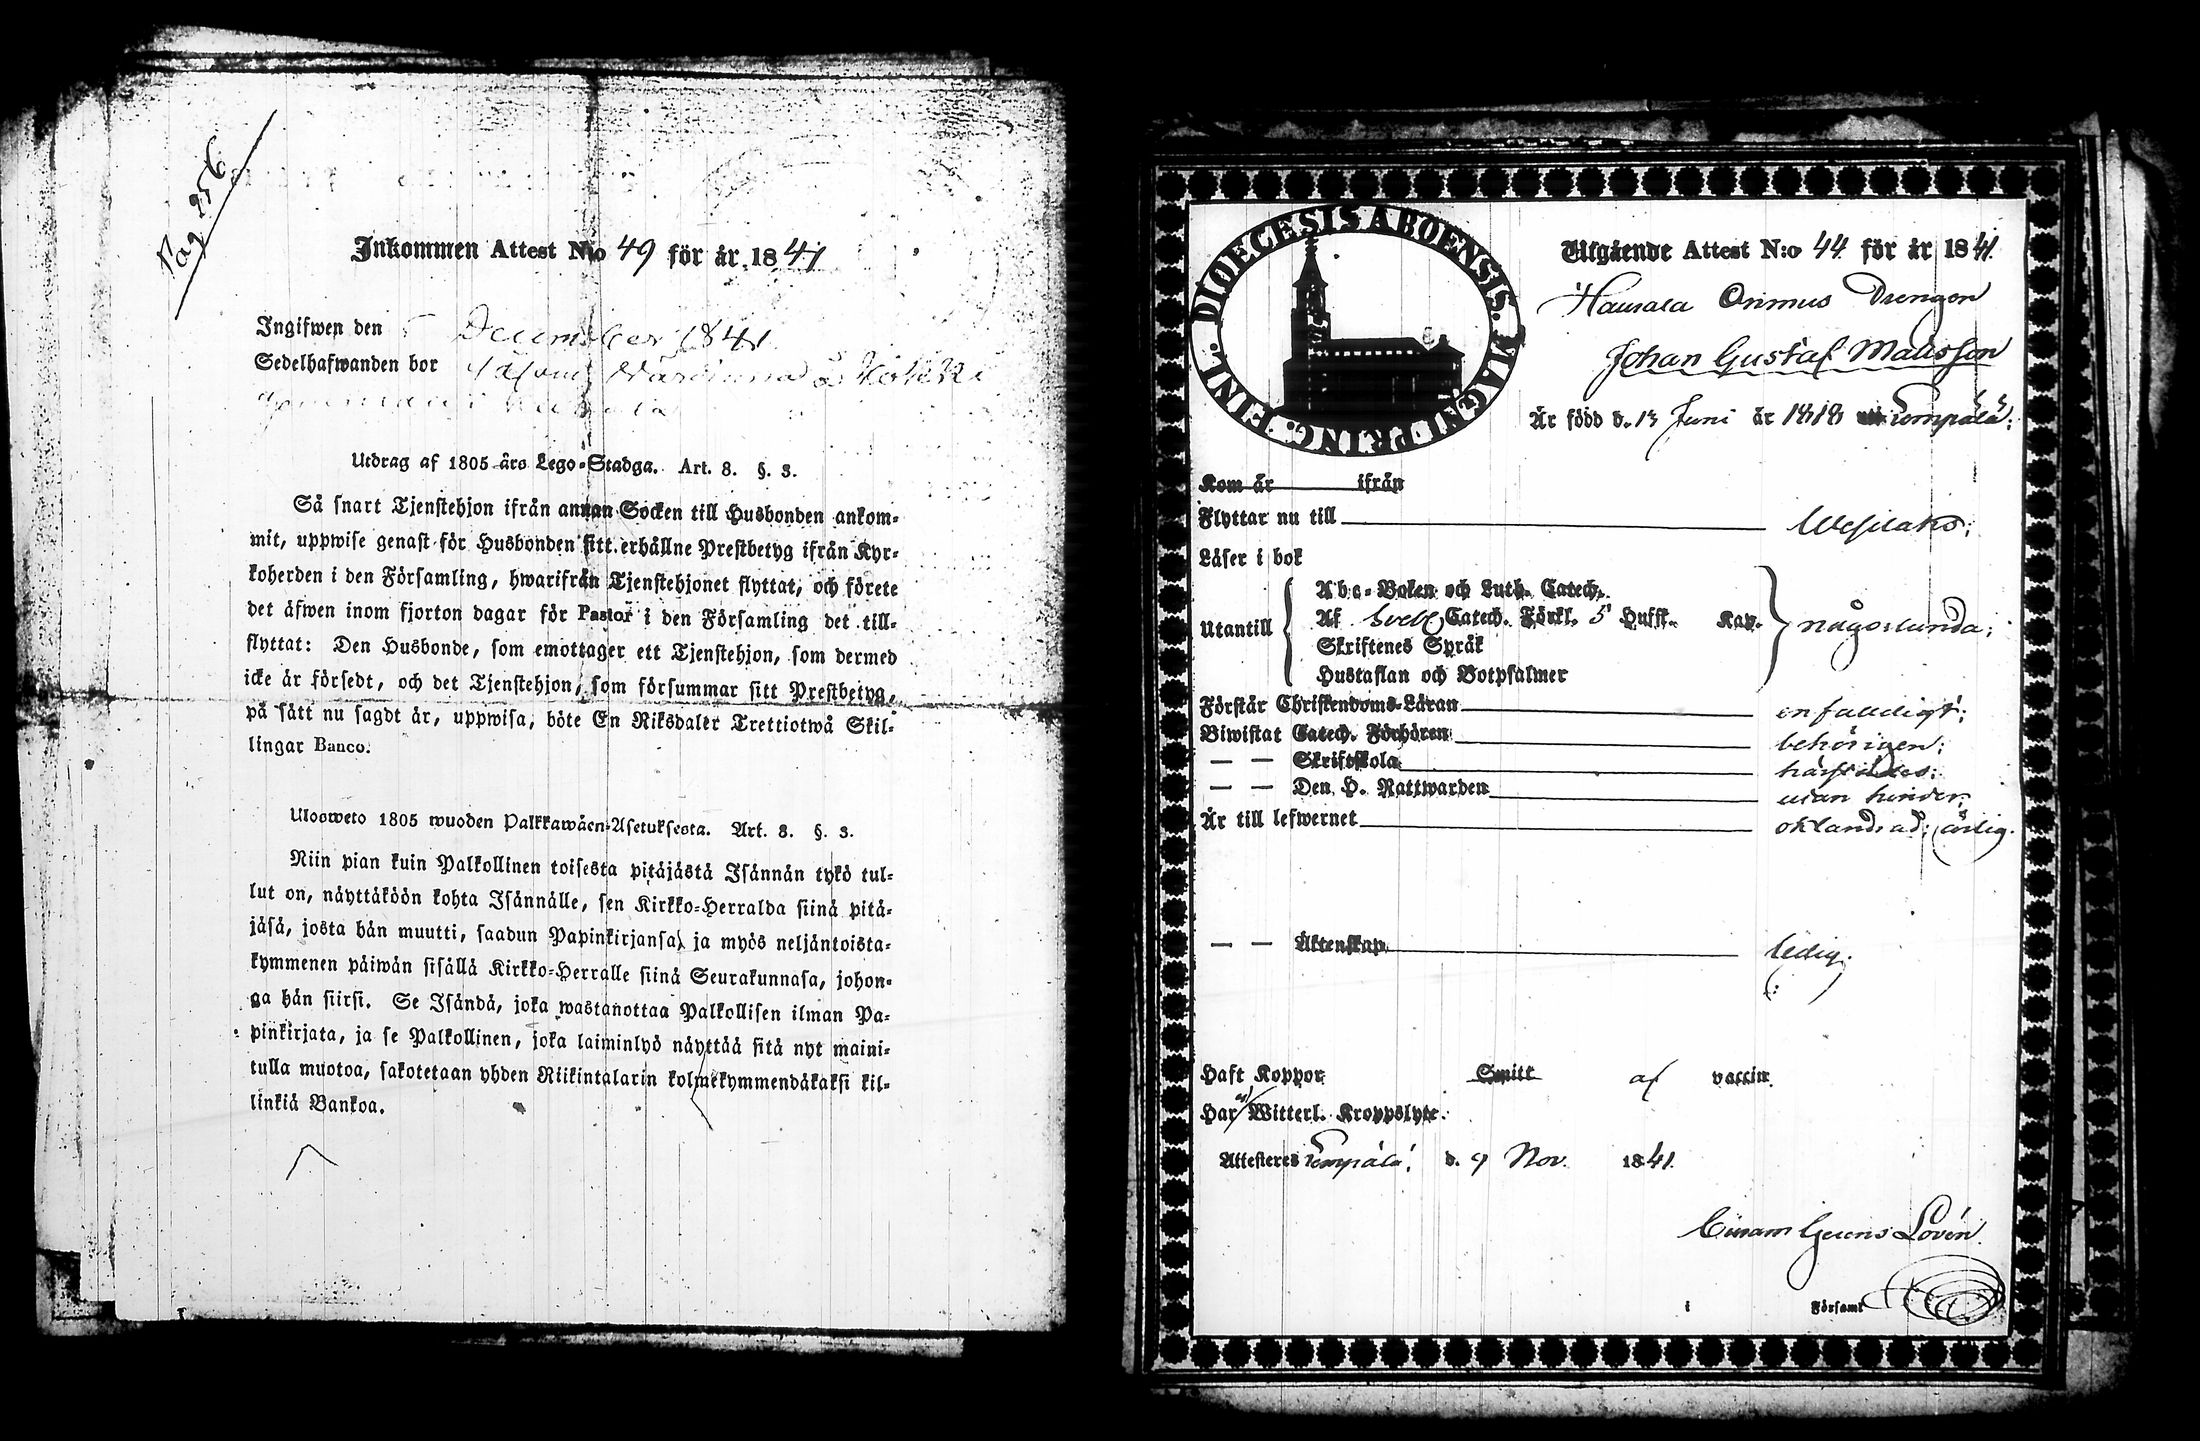 Pag 256
Inkommen Attest N:o 49 för år 1841
Ingifwen den December 1841
Sedelhafwanden bor
Utdrag af 1805 års Lego-Stadga. Art. 8. §. 3.
Så snart Tjenstehjon ifrån annan Socken till Husbonden ankom-
mit, uppwise genast för Husbonden sitt erhållne Prestbetyg ifrån Kyr-
koherden i den Församling, hwarifrån Tjenstehjonet flyttat, och förete
det äfwen inom fjorton dagar för Pastor i den Församling det till-
flyttat: Den Husbonde, som emottager ett Tjenstehjon, som dermed
icke är försedt, och det Tjenstehjon, som försummar sitt Prestbetyg,
på sätt nu sagdt är, uppwisa, böte En Riksdaler Trettiotwå Skil-
lingar Banco.
Ulosweto 1805 wuoden Palkkawäen-Asetuksesta. Art. 8. §. 3.
Niin pian kuin Palkollinen toisesta pitäjästä Isännän tykö tul-
lut on, näyttäköön kohta Isännälle, sen Kirkko-Herralda siinä pitä-
jäsä, josta hän muutti, saadun Papinkirjansa, ja myös neljäntoista-
kymmenen päiwän sisällä Kirkko-Herralle siinä Seurakunnasa, johon-
ga hän siirsi. Se Isändä, joka wastanottaa Palkollisen ilman Pa-
pinkirjata, ja se Palkollinen, joka laiminlyö näyttää sitä nyt maini-
tulla muotoa, sakotetaan yhden Riikintalarin kolmekymmendäkaksi kil-
linkiä Bankoa.
DIOECESIS ABOENSIS. MAGNI PRINC. FINL.
Utgående Attest N:o 44 för år 1841.
Drengen
Johan Gustaf Matsson
Är född d. 13 Juni år 1818 uti Lempälä;
Kom år ifrån
Flyttar nu till Wesilaks;
Läser i bok
Utantill
Abc-Boken och Luth. Catech.
Af Sveb. Catech. Förkl. 5 Hufst. Kap.
Skriftenes Språk
Hustaflan och Botpsalmer
någorlunda;
Förstår Christendoms-Läran enfaldigt;
Biwistat Catech. Förhören behörigen;
— — Skriftskola härstädes;
— — Den H. Nattwarden utan hinder;
Är till lefwernet oklandrad; ärlig.
— — Äktenskap ledig.
Haft Koppor Smitt af vaccin.
Har ej Witterl. Kroppslyte.
Attesteras Lempälä d. 9 Nov. 1841.
Lovén
i Församl